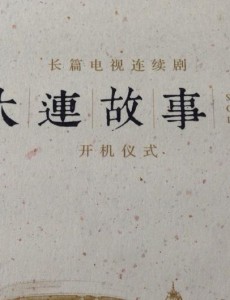 长篇电视连续剧
大連故事
开机仪式